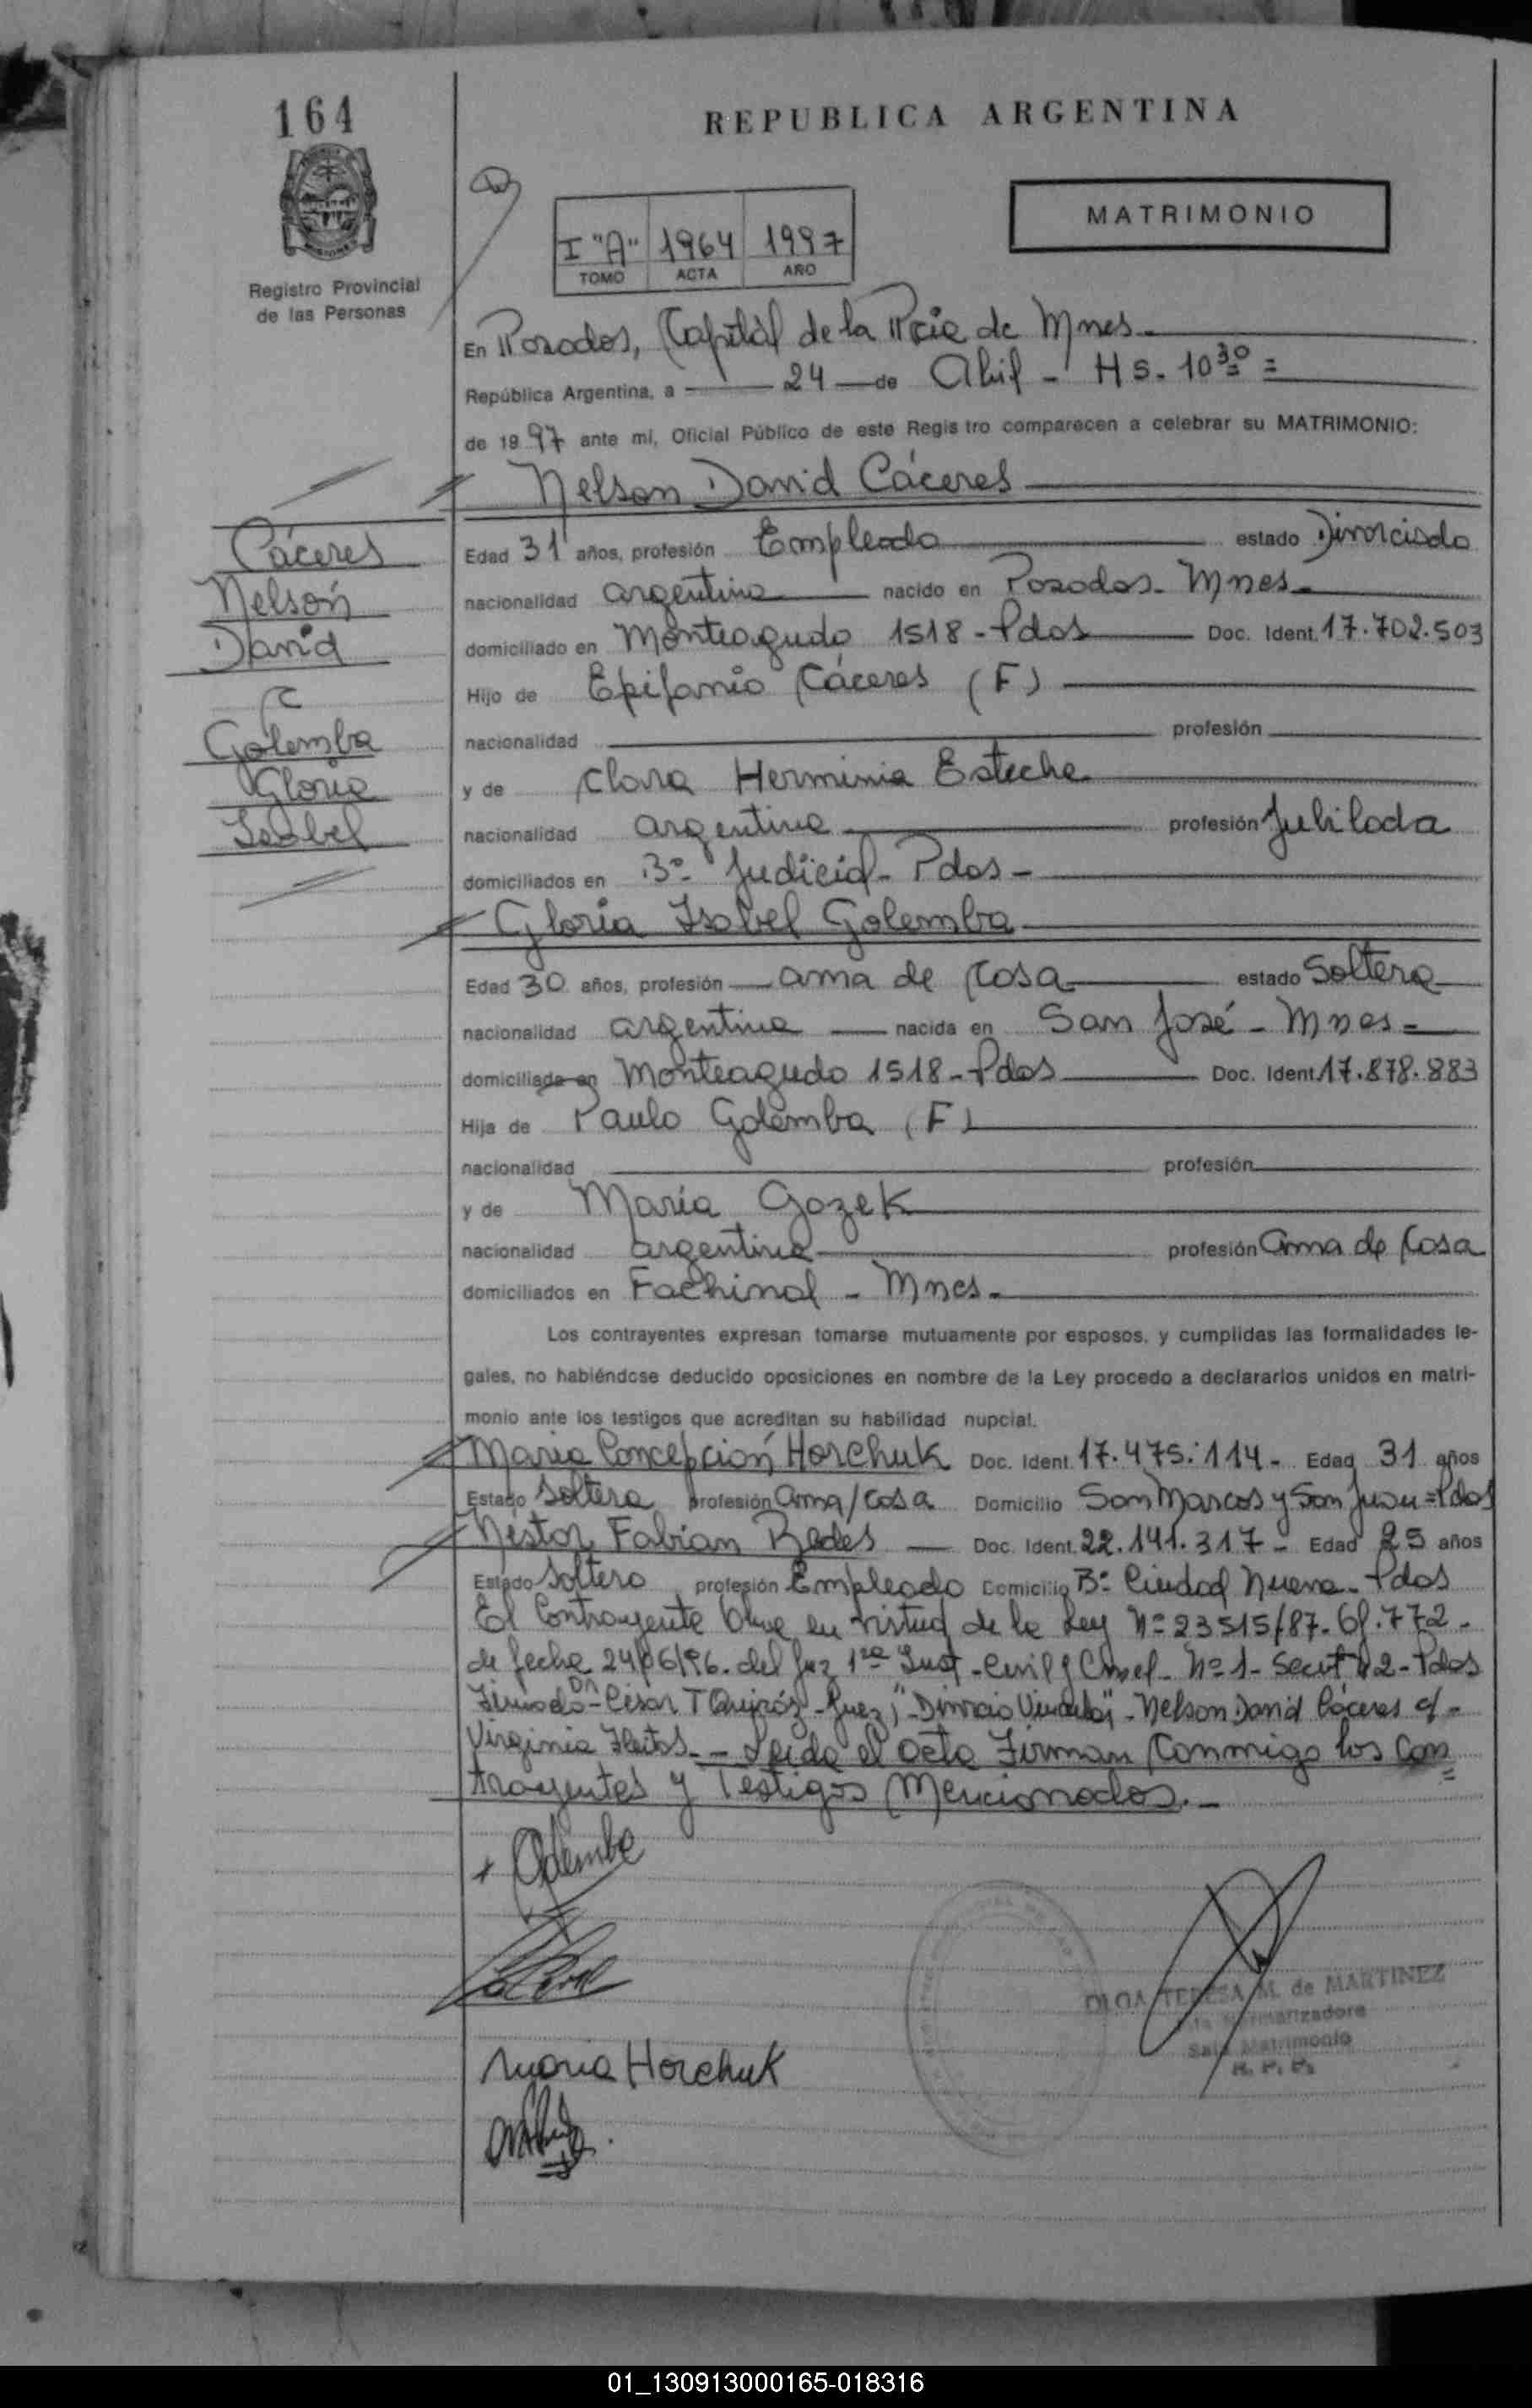 164
REPUBLICA ARGENTINA
MATRIMONIO
I "A" 1964 1997
TOMO ACTA AÑO
Registro Provincial
de las Personas
En Posadas, Capital de la Pcia de Mnes
República Argentina, a 24 de Abril - Hs. 10 30 =
de 1997 ante mí, Oficial Público de este Registro comparecen a celebrar su MATRIMONIO:
Nelson David Cáceres
Cáceres
Nelson
David
c
Golemba
Gloria
Isabel
Edad 31 años, profesión Empleado estado Divorciado
nacionalidad argentina nacido en Posadas - Mnes
domiciliado en Monteagudo 1518 - Pdas Doc. Ident. 17.702.503
Hijo de Epifanio Cáceres (F)
nacionalidad profesión
y de Clara Herminia Esteche
nacionalidad argentina profesión Jubilada
domiciliados en B° Judicial - Pdas -
Gloria Isabel Golemba
Edad 30 años, profesión ama de casa estado Soltera
nacionalidad argentina nacida en San José - Mnes =
domiciliada en Monteagudo 1518 - Pdas Doc. Ident. 17.878.883
Hija de Paulo Golemba (F)
nacionalidad profesión
y de María Gozek
nacionalidad argentina profesión ama de casa
domiciliados en Fachinal - Mnes -
Los contrayentes expresan tomarse mutuamente por esposos, y cumplidas las formalidades le-
gales, no habiéndose deducido oposiciones en nombre de la Ley procedo a declararlos unidos en matri-
monio ante los testigos que acreditan su habilidad nupcial.
María Concepción Horchuk Doc. Ident. 17.475.114 - Edad 31 años
Estado Soltera profesión ama/casa Domicilio San Marcos y San Juan = Pdas
Néstor Fabián Doc. Ident. 22.141.317 - Edad 25 años
Estado Soltero profesión Empleado Domicilio B° Ciudad Nueva - Pdas
El Contrayente en virtud de la Ley N° 23515/87. 772 -
de fecha 24/06/96. del Juz 1ra Inst - Civil y Comel - N° 1 - Secret N 2 - Pdas
Firmado - Dn César T Quiróz - Juez; "Divorcio Vincular" - Nelson David Cáceres c/ -
Virginia - Leída el acta Firman Conmigo los Con
trayentes y Testigos Mencionados. -
Golembe
Maria Horchuk
OLGA TERESA M. de MARTINEZ
Sala Matrimonio
R. P. P.
01_130913000165-018316